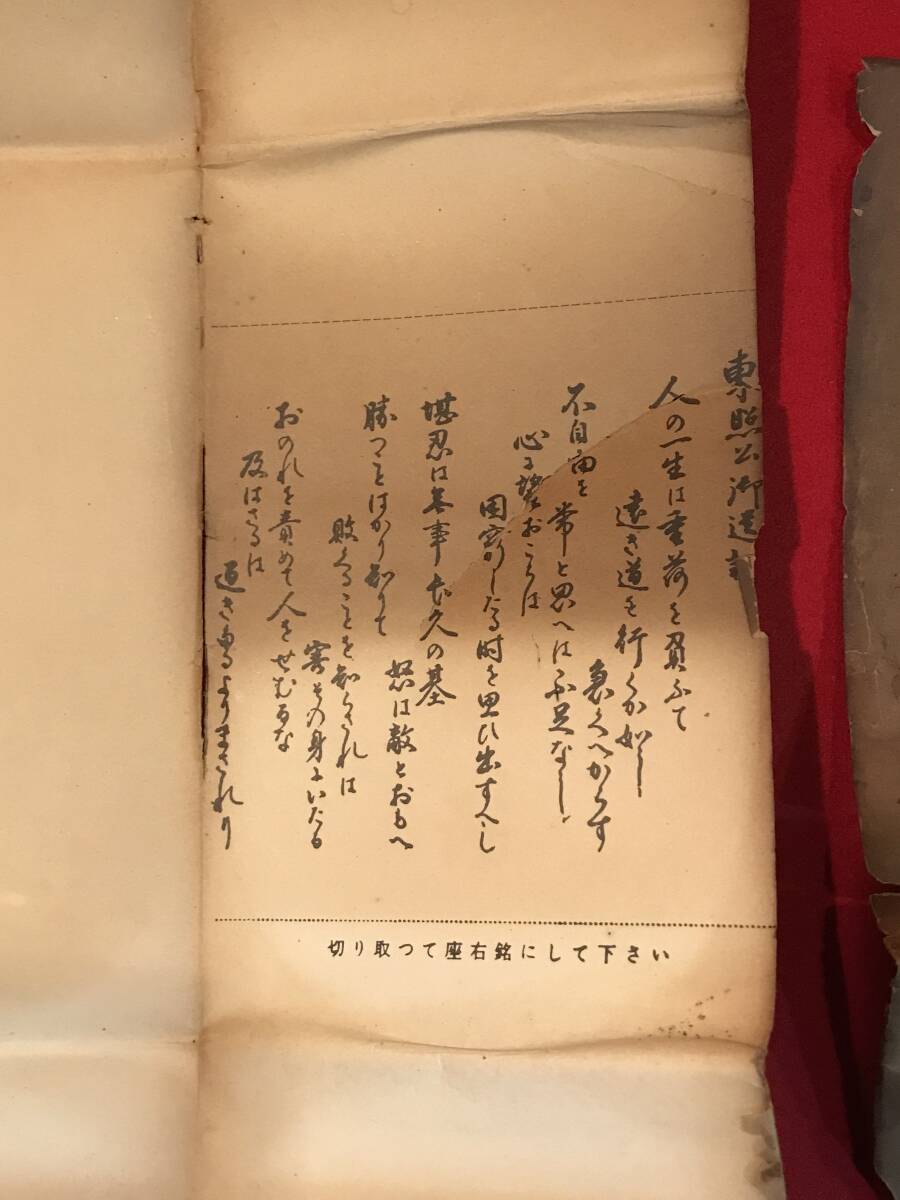 東照公御遺訓
人の一生は重荷を負ふて
遠き道を行くか如し
急くへからす
不自由を常と思へは不足なし
心に望おこらは
困窮したる時を思ひ出すへし
堪忍は無事長久の基
怒は敵とおもへ
勝つことはかり知りて
敗くることを知らされは
害その身にいたる
おのれを責めて人をせむるな
及はさるは
過きたるよりまされり
切り取つて座右銘にして下さい